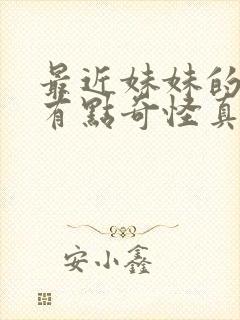 最近妹妹的
有點奇怪真
安小鑫